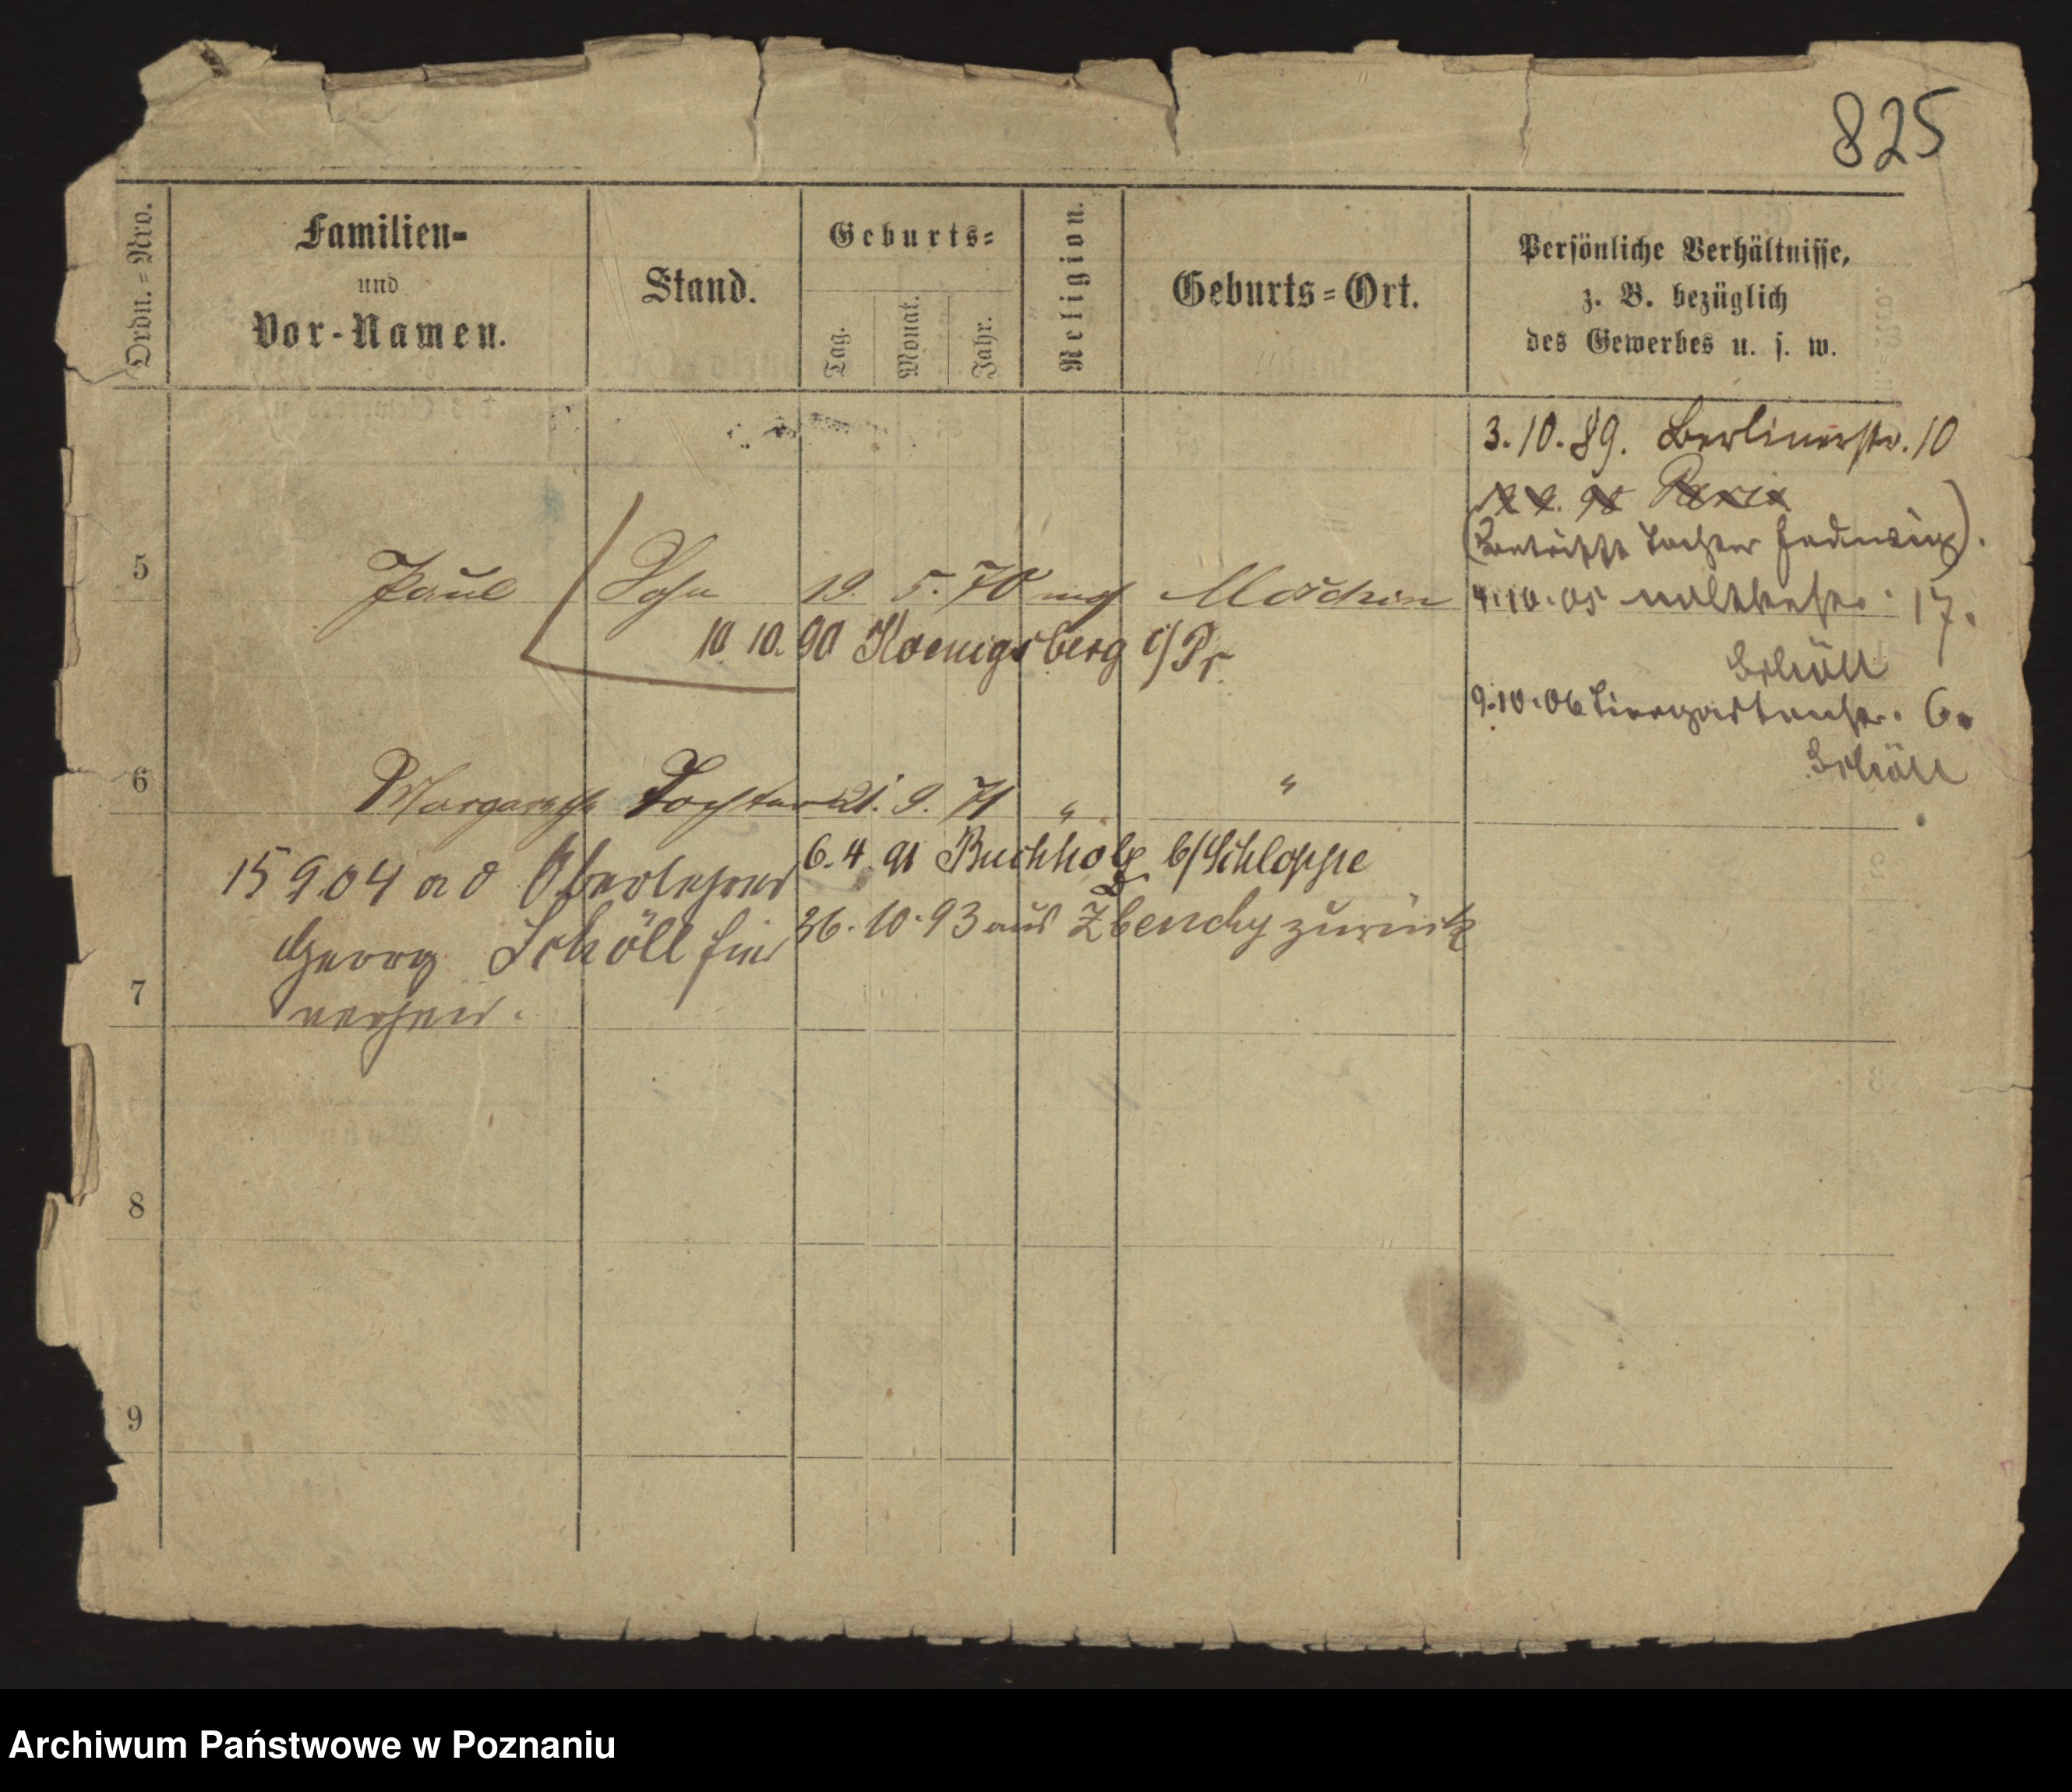 825
Ordn.-Nro.
Familien-
und
Vor-Namen.
Stand.
Geburts-
Tag.
Monat.
Jahr.
Religion.
Geburts-Ort.
Persönliche Verhältnisse,
z. B. bezüglich
des Gewerbes u. s. w.
3.10.89. Berlinerstr. 10
Paris
(betrifft Tochter Hedwig).
5 Paul Sohn 19. 5. 70 Moschin
4.10.05 17.
10 10. 90 Koenigsberg i/Pr
Schöll
9.10.06 Tiergartenstr. 6.
Schöll
6 Margarethe Tochter 21. 9. 71 " "
6. 4. 91 Buchholz b/Schloppe
15904 a d Oberlehrer
26. 10. 93 aus Zbenchy zurück
Georg Schöll hier
7 verheir.
8
9
Archiwum Państwowe w Poznaniu